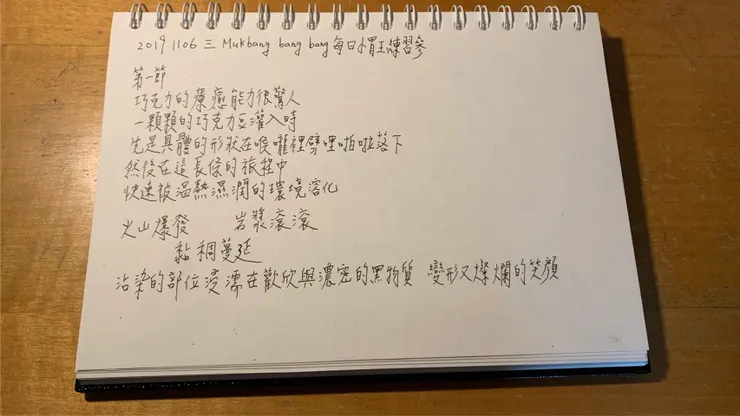 2019 1106 三 Mukbang bang bang 每日胃王練習參
第一節
巧克力的療癒能力很驚人
一顆顆的巧克力豆灌入時
先是具體的形狀在喉嚨裡劈哩啪啦落下
然後在這長條的旅程中
快速被溫熱濕潤的環境溶化
火山爆發 岩漿滾滾
黏稠蔓延
沾染的部位浸濡在歡欣與濃密的黑物質 變形又燦爛的笑顏